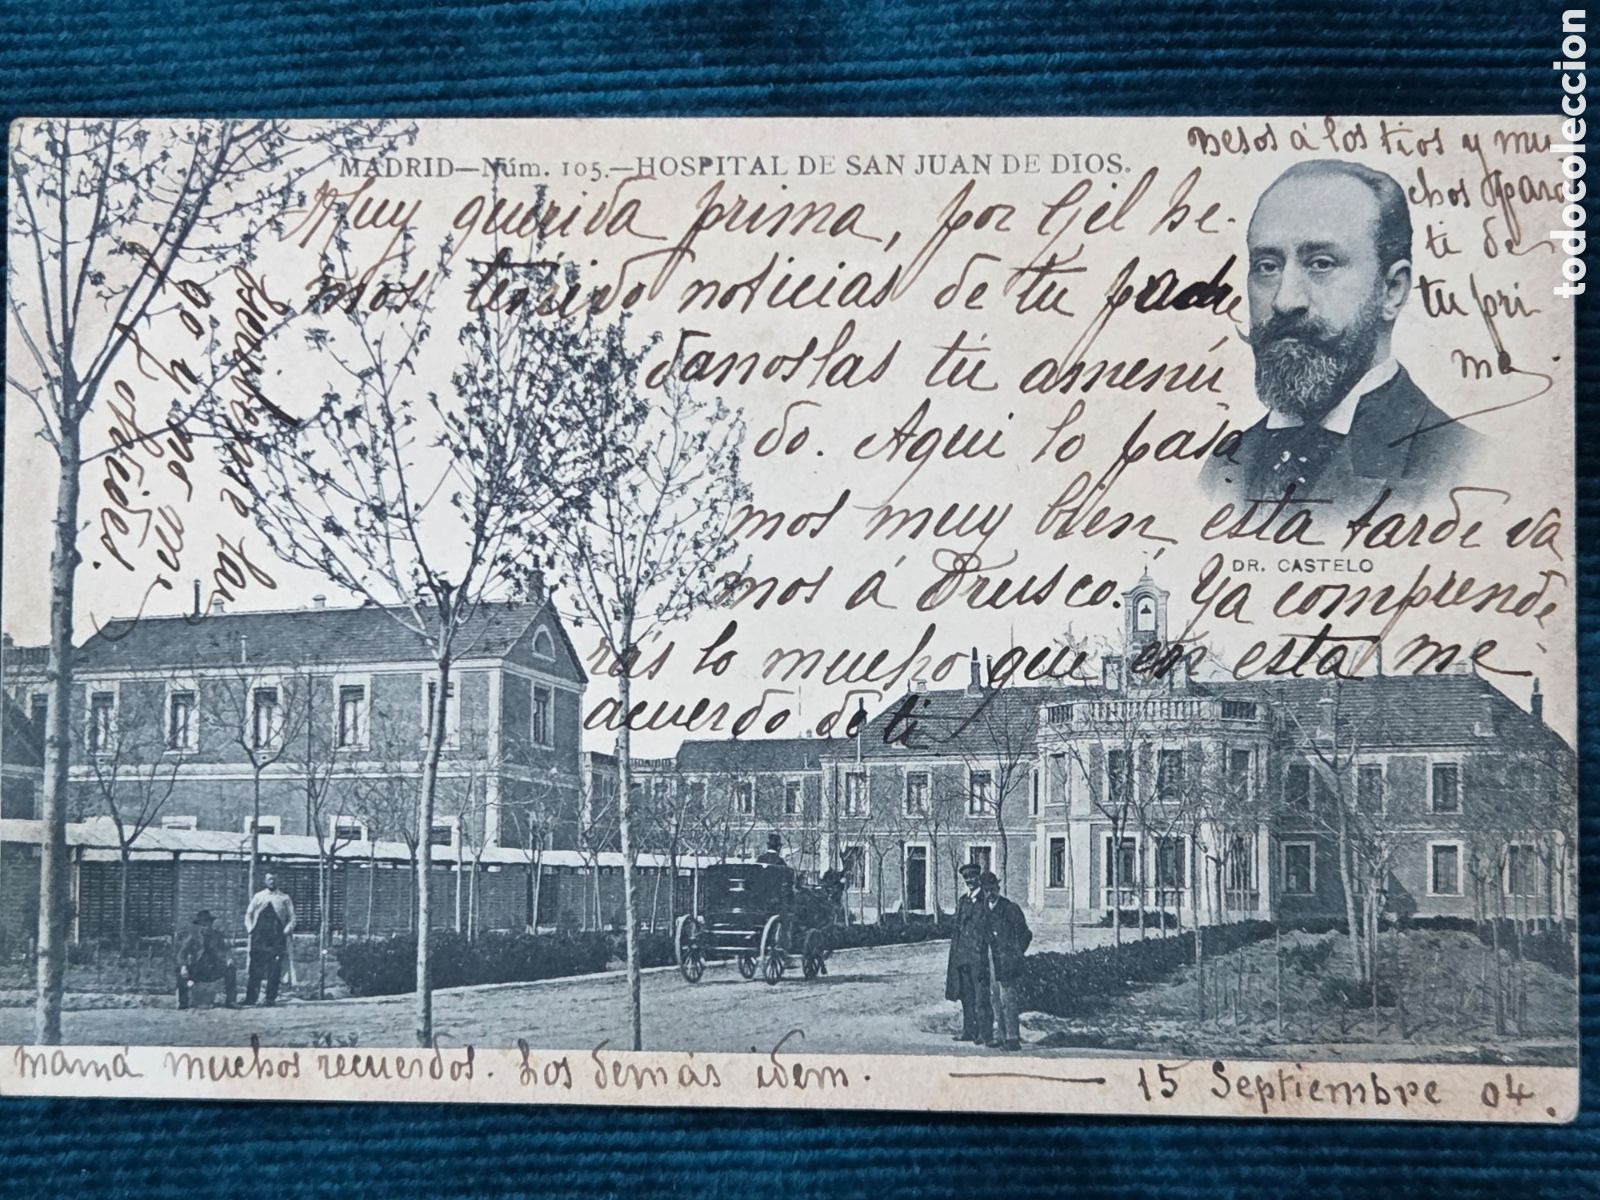 MADRID—Núm. 105.—HOSPITAL DE SAN JUAN DE DIOS.
Muy querida prima, por Gil he-
mos tenido noticias de tu padre
danoslas tu amenú
do. Aqui lo pasa
mos muy bien, esta tarde va
mos á Orusco. Ya comprende
rás lo mucho que en esta me
acuerdo de ti
Besos á los tios y mu
chos para
ti de
tu pri
ma.
DR. CASTELO
mamá muchos recuerdos. Los demás idem. — 15 Septiembre 04.
todocoleccion